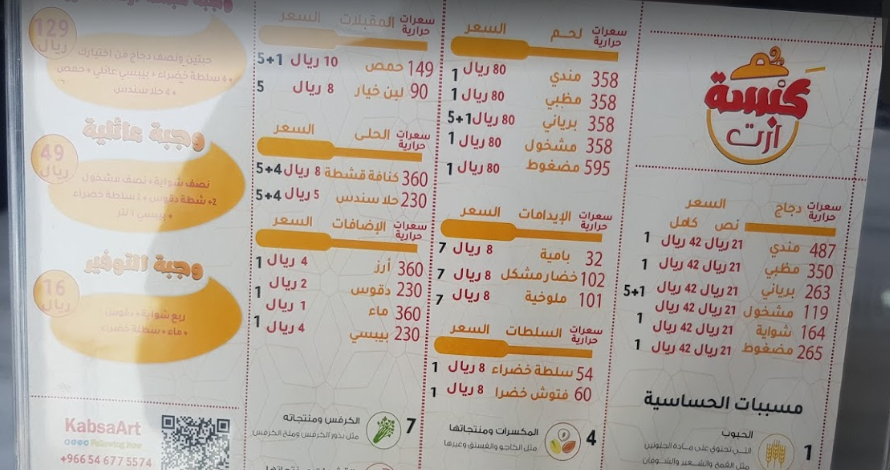 كبسة
ارت
سعرات حرارية دجاج السعر
نص كامل
487 مندي 21 ريال 42 ريال 1
350 مظبي 21 ريال 42 ريال 1
263 برياني 21 ريال 42 ريال 5+1
119 مشخول 21 ريال 42 ريال
164 شواية 21 ريال 42 ريال 1
265 مضغوط 21 ريال 42 ريال 1
مسببات الحساسية
1
الحبوب
التي تحتوي على مادة الجلوتين
مثل القمح والشعير والشوفان
سعرات حرارية لحم السعر
358 مندي 80 ريال 1
358 مظبي 80 ريال 1
358 برياني 80 ريال 5+1
358 مشخول 80 ريال 1
595 مضغوط 80 ريال 1
سعرات حرارية الإيدامات السعر
32 بامية 8 ريال 7
102 خضار مشكل 8 ريال 7
101 ملوخية 8 ريال 7
سعرات حرارية السلطات السعر
54 سلطة خضراء 8 ريال 1
60 فتوش خضرا 8 ريال 1
4
المكسرات ومنتجاتها
مثل الكاجو والفستق وغيرها
سعرات حرارية المقبلات السعر
149 حمص 10 ريال 5+1
90 لبن خيار 8 ريال 5
سعرات حرارية الحلى السعر
360 كنافة قشطة 8 ريال 5+4
230 حلا سندس 5 ريال 5+4
سعرات حرارية الإضافات السعر
360 أرز 4 ريال 1
230 دقوس 2 ريال 1
360 ماء 1 ريال
230 بيبسي 4 ريال 1
7
الكرفس ومنتجاته
مثل بذور الكرفس وملح الكرفس
129 ريال
حبتين ونصف دجاج من اختيارك
+ 4 سلطة خضراء + بيبسي عائلي + حمص
+ 4 حلا سندس
وجبة عائلية
49 ريال
نصف شواية + نصف مشخول
+2 شطة دقوس + 2 سلطة خضراء
+ بيبسي 1 لتر
وجبة التوفير
16 ريال
ربع شواية + دقوس
+ ماء + سلطة خضراء
KabsaArt
+966 54 677 5574